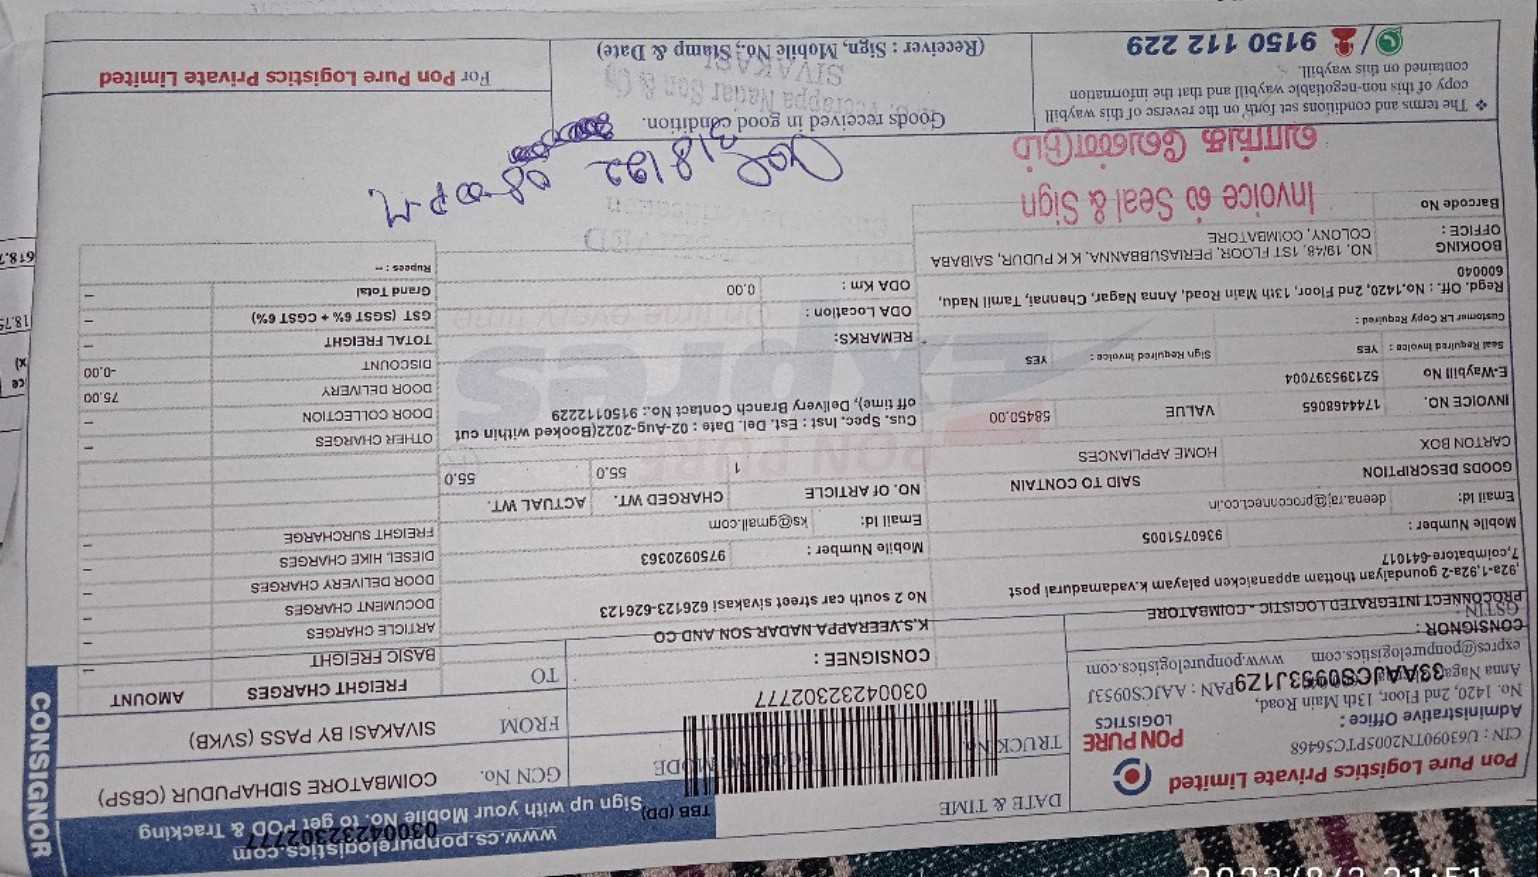 www.cs.ponpurelogistics.com
Sign up with your Mobile No. to get POD & Tracking
CONSIGNOR
Pon Pure Logistics Private Limited
CIN : U63090TN2005PTC56468
Administrative Office :
No. 1420, 2nd Floor, 13th Main Road,
Anna Naga
33AAJCS0953J1Z9 PAN : AAJCS0953J
expres@ponpurelogistics.com www.ponpurelogistics.com
PON PURE
LOGISTICS
DATE & TIME
TBB (DD)
TRUCK No.
MODE
03004232302777
GCN No.
03004232302777
COIMBATORE SIDHAPUDUR (CBSP)
FROM
SIVAKASI BY PASS (SVKB)
TO
CONSIGNOR :
GSTIN :
PROCONNECT INTEGRATED LOGISTIC - COIMBATORE
,92a-1,92a-2 goundaiyan thottam appanaicken palayam k.vadamadurai post
7,coimbatore-641017
Mobile Number : 9360751005
Email Id: deena.raj@proconnect.co.in
CONSIGNEE :
K.S.VEERAPPA NADAR SON AND CO
No 2 south car street sivakasi 626123-626123
Mobile Number : 9750920363
Email Id: ks@gmail.com
GOODS DESCRIPTION SAID TO CONTAIN
CARTON BOX HOME APPLIANCES
NO. Of ARTICLE CHARGED WT. ACTUAL WT.
1 55.0 55.0
INVOICE NO. 1744468065 VALUE 58450.00
E-Waybill No 521395397004
Seal Required Invoice : YES Sign Required Invoice : YES
Customer LR Copy Required :
Regd. Off. : No.1420, 2nd Floor, 13th Main Road, Anna Nagar, Chennai, Tamil Nadu,
600040
BOOKING OFFICE : NO. 19/48, 1ST FLOOR, PERIASUBBANNA, K K PUDUR, SAIBABA
COLONY, COIMBATORE
Barcode No
Cus. Spec. Inst : Est. Del. Date : 02-Aug-2022(Booked within cut
off time), Delivery Branch Contact No.: 9150112229
REMARKS:
ODA Location :
ODA Km : 0.00
PON PURE
Expres
On time every time
FREIGHT CHARGES AMOUNT
BASIC FREIGHT –
ARTICLE CHARGES –
DOCUMENT CHARGES –
DOOR DELIVERY CHARGES –
DIESEL HIKE CHARGES –
FREIGHT SURCHARGE –
OTHER CHARGES –
DOOR COLLECTION –
DOOR DELIVERY 75.00
DISCOUNT -0.00
TOTAL FREIGHT –
GST (SGST 6% + CGST 6%) –
Grand Total –
Rupees : --
Invoice ல் Seal & Sign
வாங்க வேண்டும்
❖ The terms and conditions set forth on the reverse of this waybill
copy of this non-negotiable waybill and that the information
contained on this waybill.
9150 112 229
3/8/22
Goods received in good condition.
Veerappa Nadar Son & Co
SIVAKASI
(Receiver : Sign, Mobile No., Stamp & Date)
For Pon Pure Logistics Private Limited
618.7
18.75